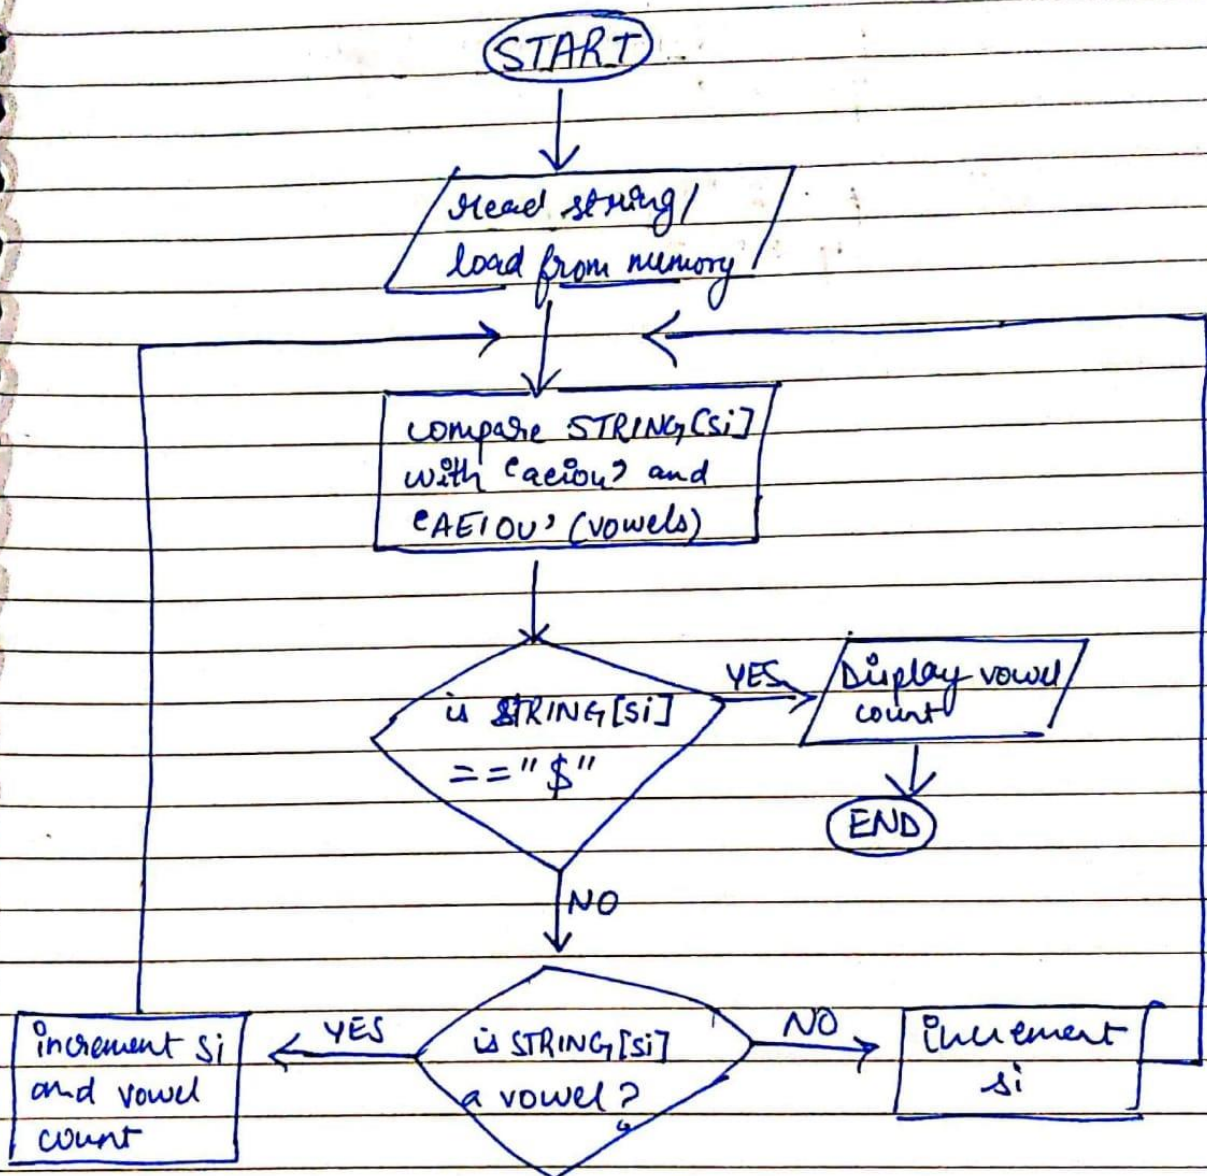 START
read string/
load from memory
compare STRING[si]
with 'aeiou' and
'AEIOU' (vowels)
is STRING[si]
=="$"
YES
Display vowel
count
END
NO
is STRING[si]
a vowel?
YES
increment si
and vowel
count
NO
increment
si